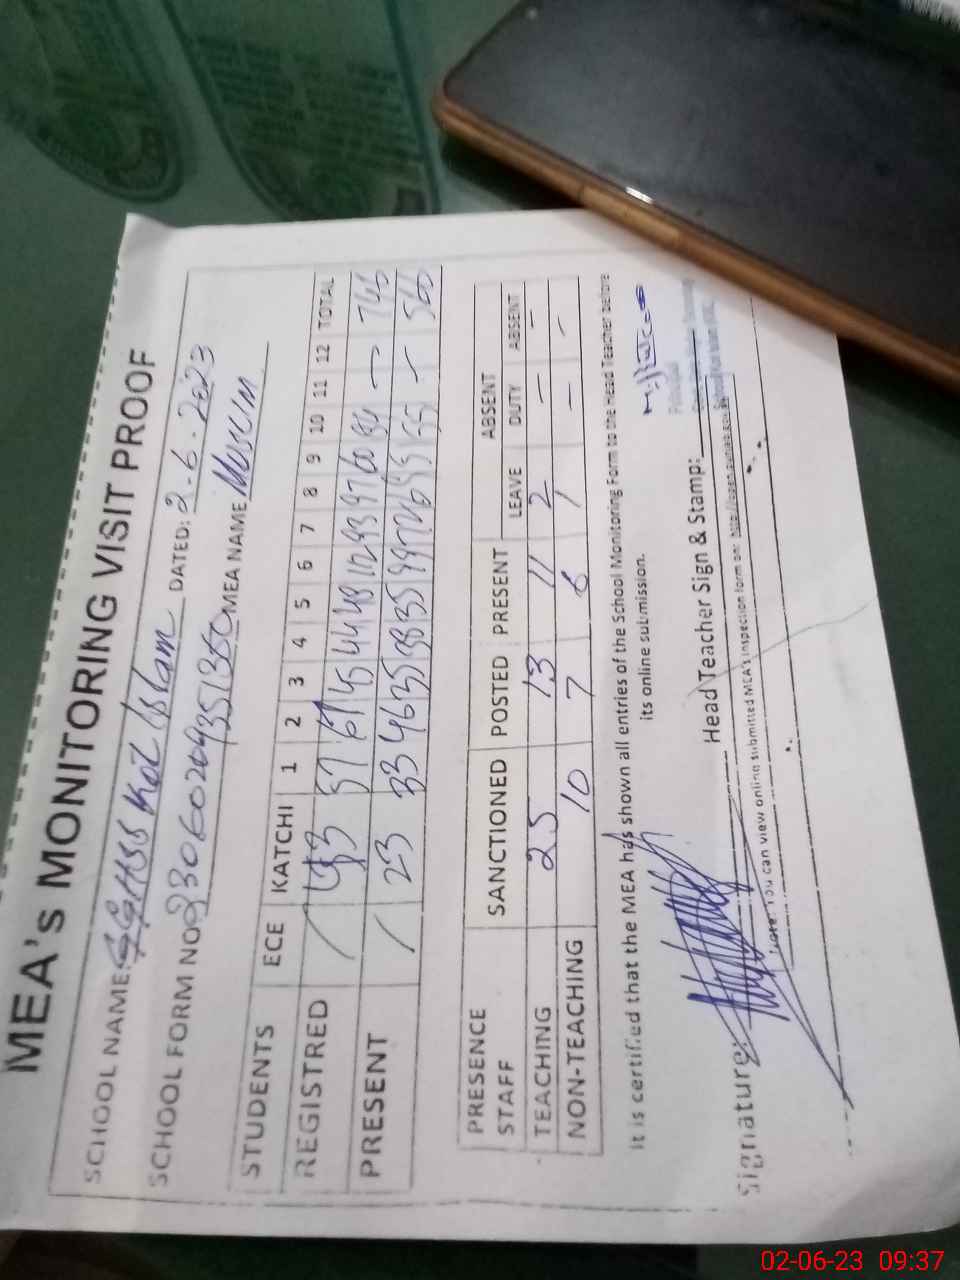 MEA's MONITORING VISIT PROOF
SCHOOL NAME: GGHSS Kot Islam DATED: 2-6-2023
SCHOOL FORM NO: MEA NAME
STUDENTS ECE KATCHI 1 2 3 4 5 6 7 8 9 10 11 12 TOTAL
REGISTRED / 57 61 45 44 48 112 93 97 60 84 —
PRESENT / 23 33 46 35 38 35 —
PRESENCE STAFF SANCTIONED POSTED PRESENT ABSENT
LEAVE DUTY ABSENT
TEACHING 25 13 11 2 — —
NON-TEACHING 10 7 6 1 — —
It is certified that the MEA has shown all entries of the School Monitoring Form to the Head Teacher before
its online submission.
Signature: Head Teacher Sign & Stamp:
Principal
Note: You can view online submitted MEA's inspection form on:
02-06-23 09:37